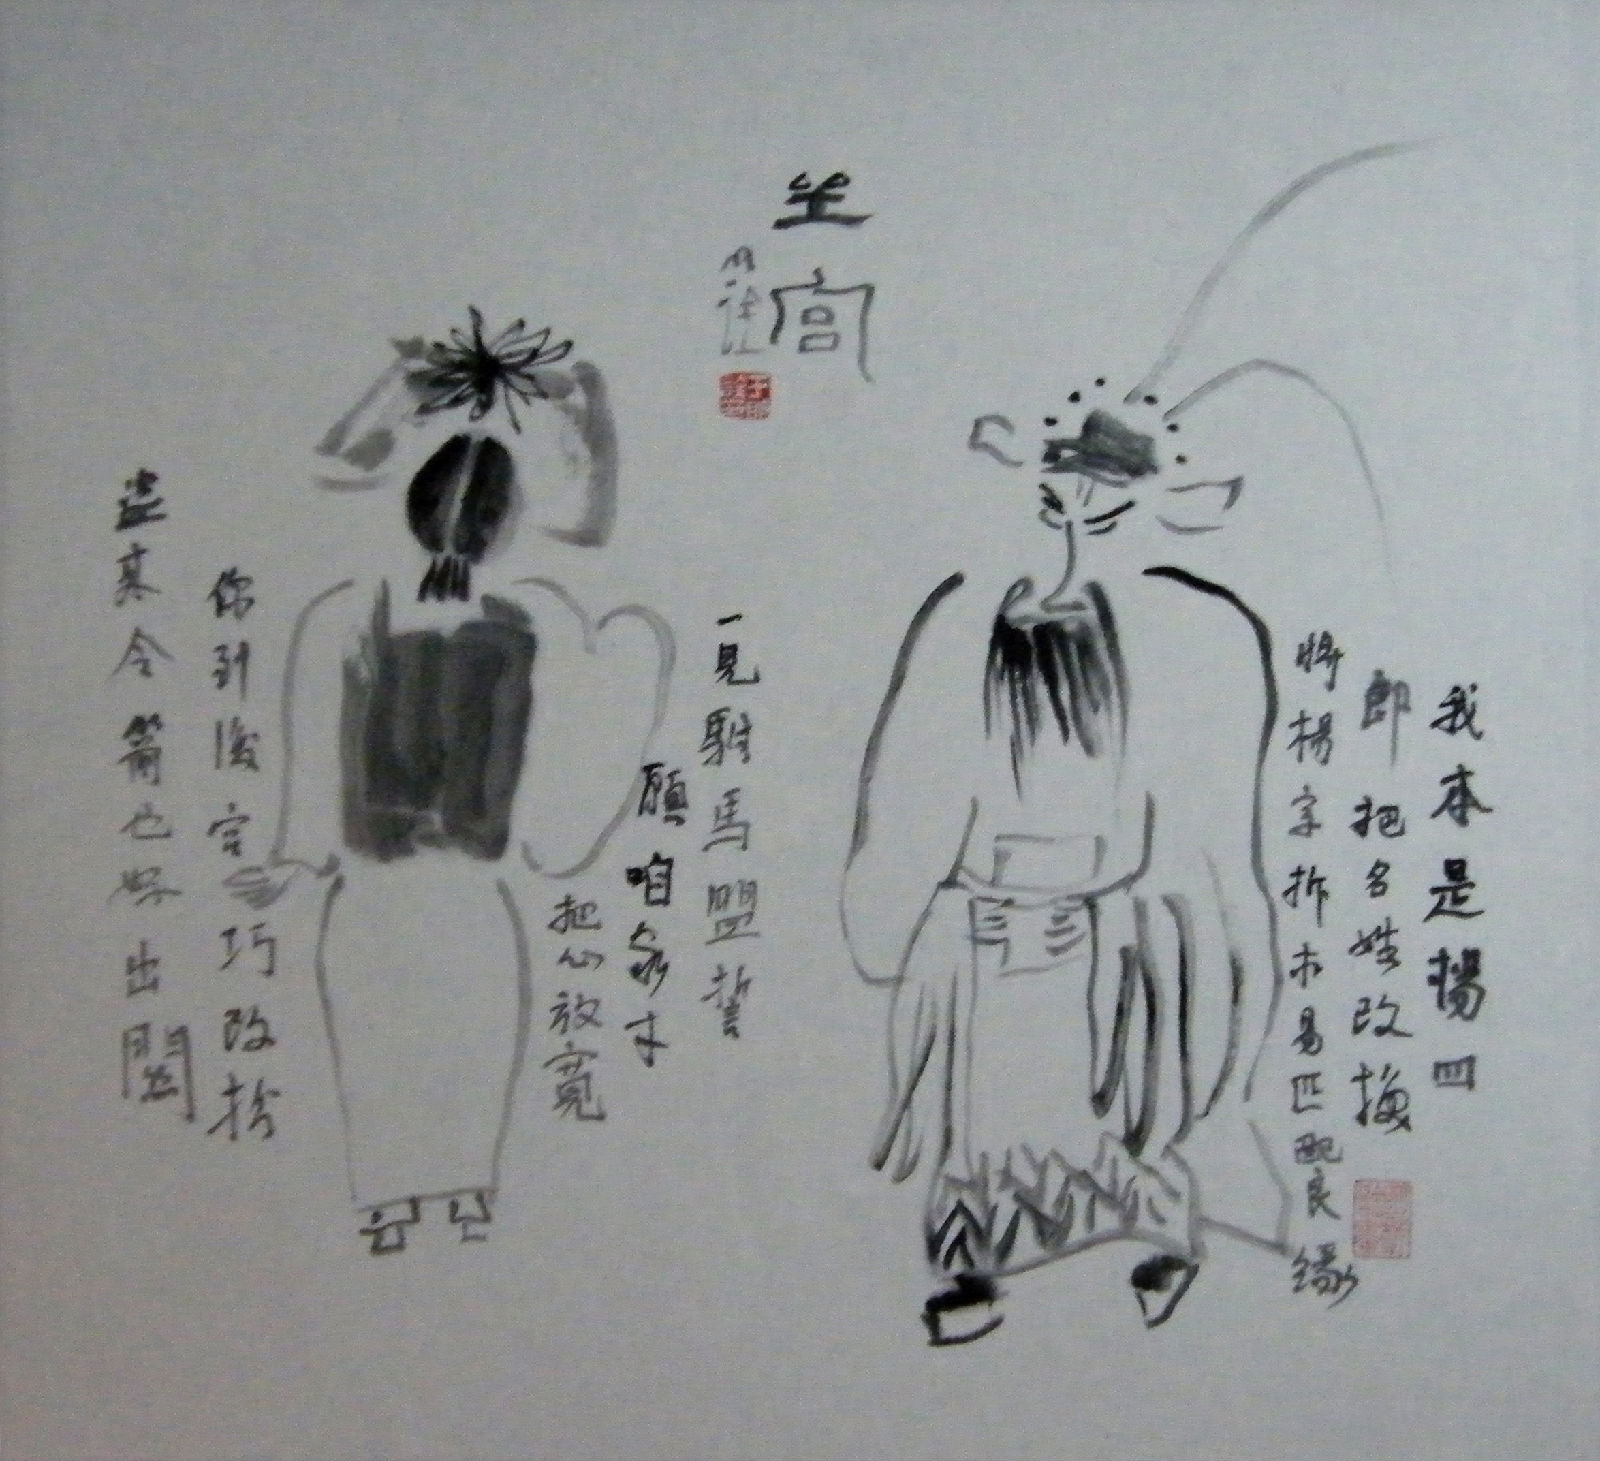 我本是楊四
郎把名姓改換
將楊字拆木易匹配良緣
坐宮
一見駙馬盟誓
願咱家才
把心放寬
你到後宮巧改扮
盜來令箭也好出關